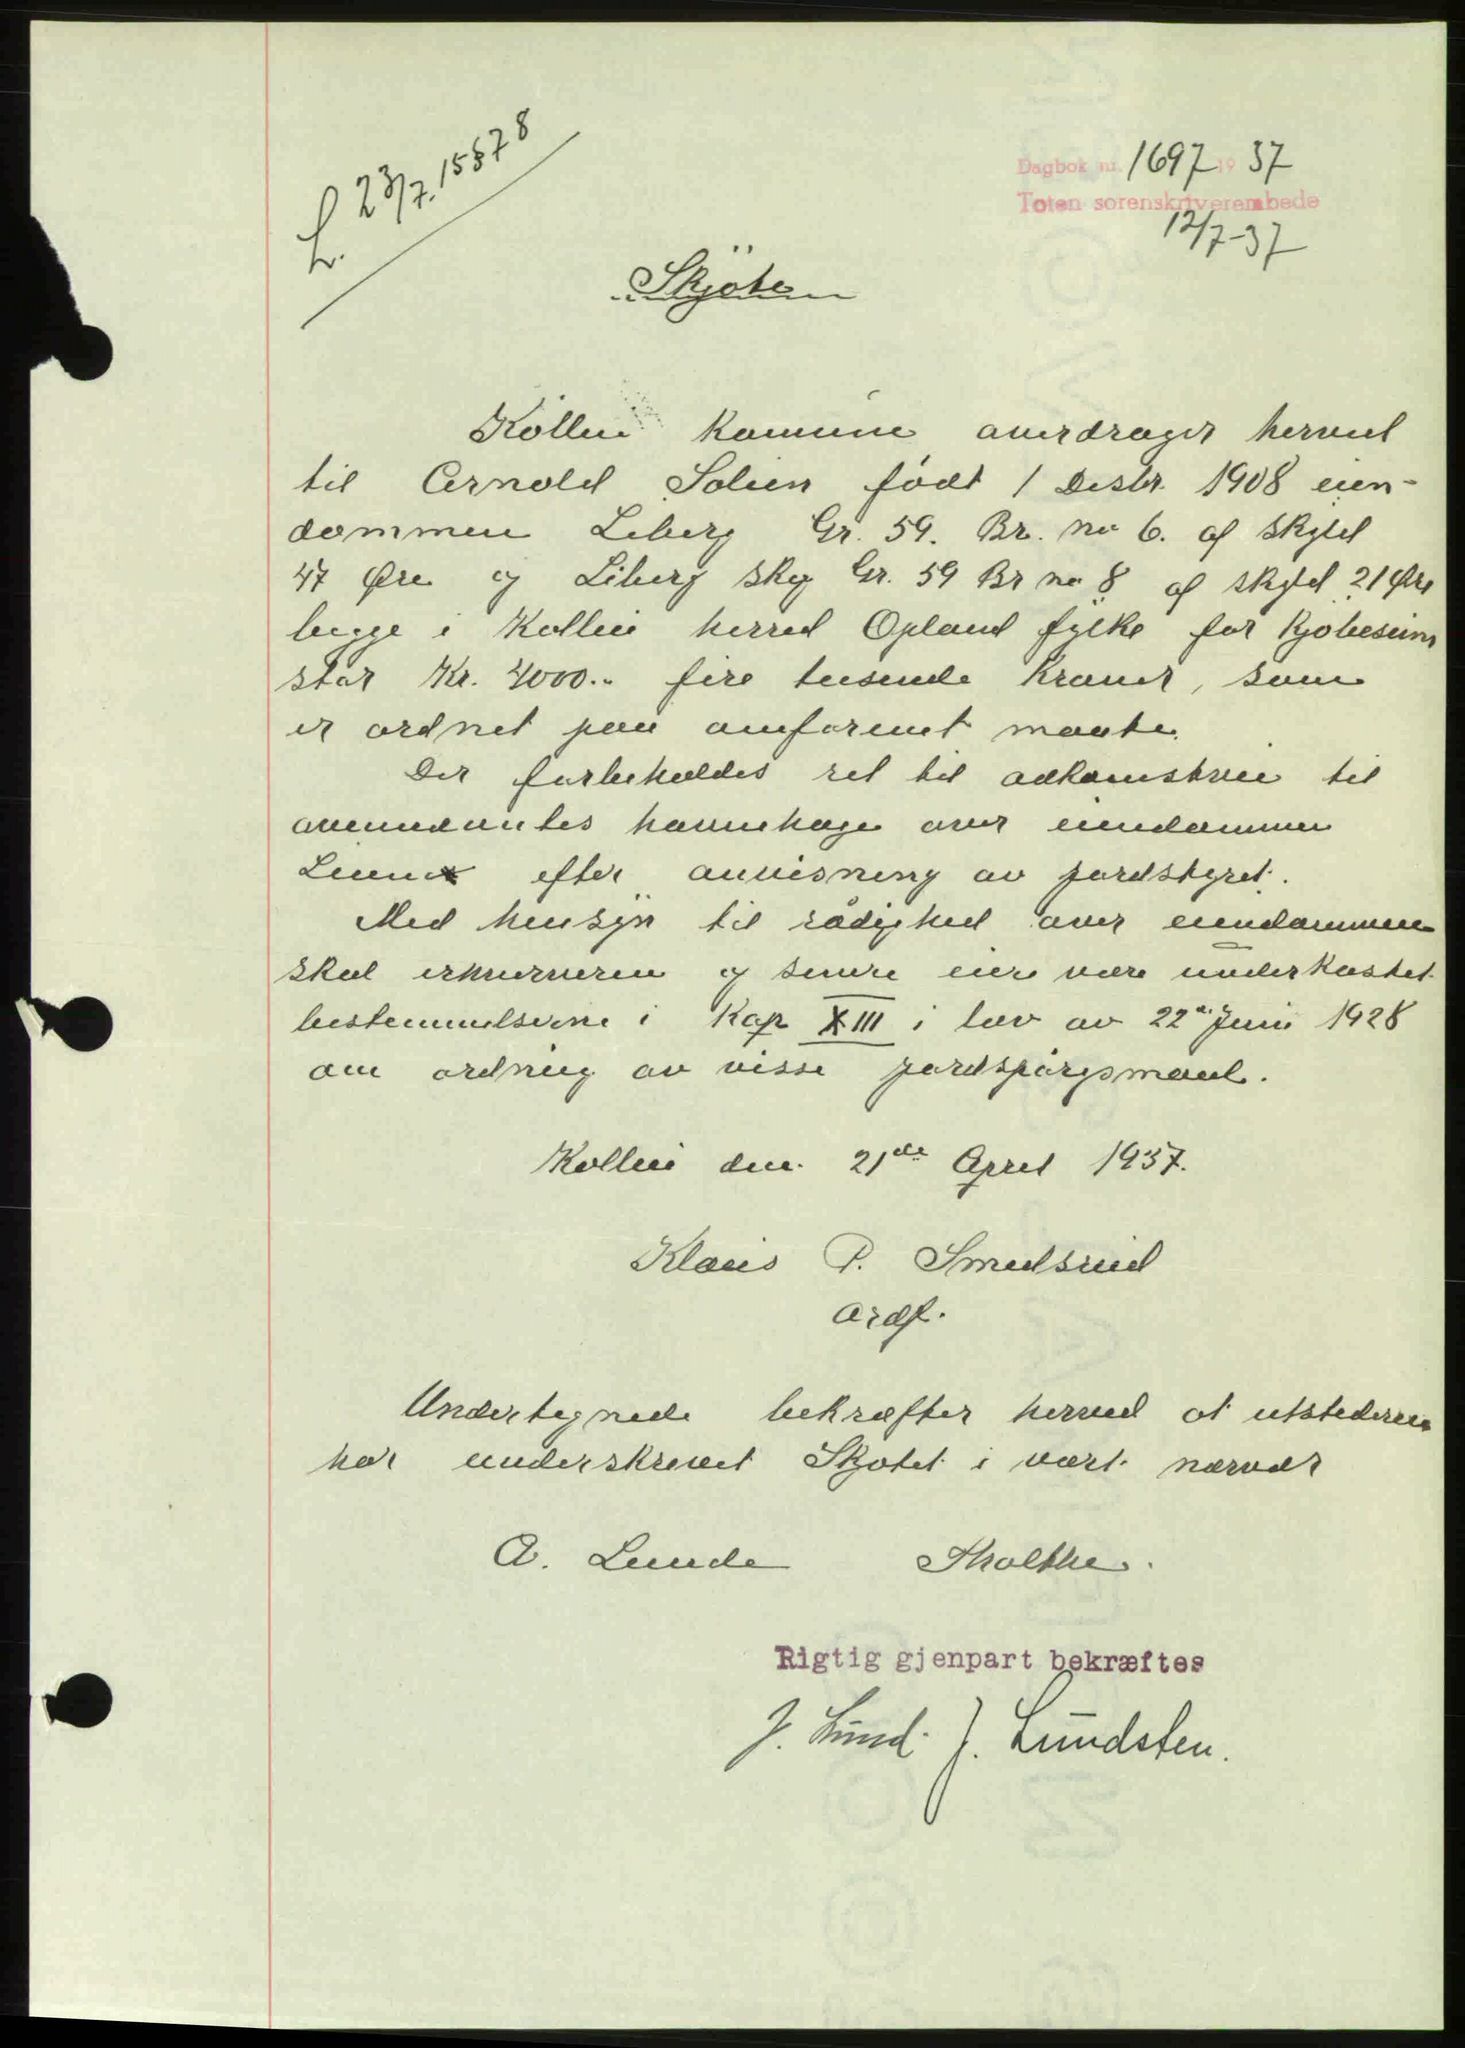 L. 23/7. 15578
Dagbok nr. 1697 19 37
Toten sorenskriverembede
12/7-37
Skjöte
Kolbu Komune overdrager herved
til Arnold Solien födt 1 Desbr. 1908 eien-
dommen Liberg Gr. 59. Br. no 6. af skyld
47 Øre og Liberg skog Gr. 59 Br no 8 af skyld 21 Øre
begge i Kolbu herred Opland fylke for Kjöbesum
stor Kr. 4000.- fire tusende Kroner, som
er ordnet paa omforenet maate.
Der forbeholdes ret til adkomstvei til
havnehage over eiendommen
efter anvisning av jordstyret.
Med hensyn til rådighed over eiendommen
skal erhververen og senere eier være underkastet
bestemmelserne i Kap XIII i lov av 22de Juni 1928
om ordning av visse jordspörgsmaal.
Kolbu den 21de April 1937.
Klaus P. Smedsrud
ordf.
Undertegnede bekræfter herved at utstederen
har underskrevet Skjötet i vort nærvær
A. Lunde
Rigtig gjenpart bekræftes
J. Lund. J. Lundsten.